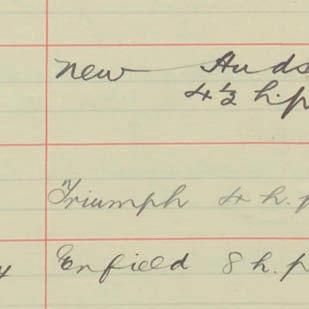 New Huds
4½ h.p
Triumph 4 h.p
Enfield 8 h.p